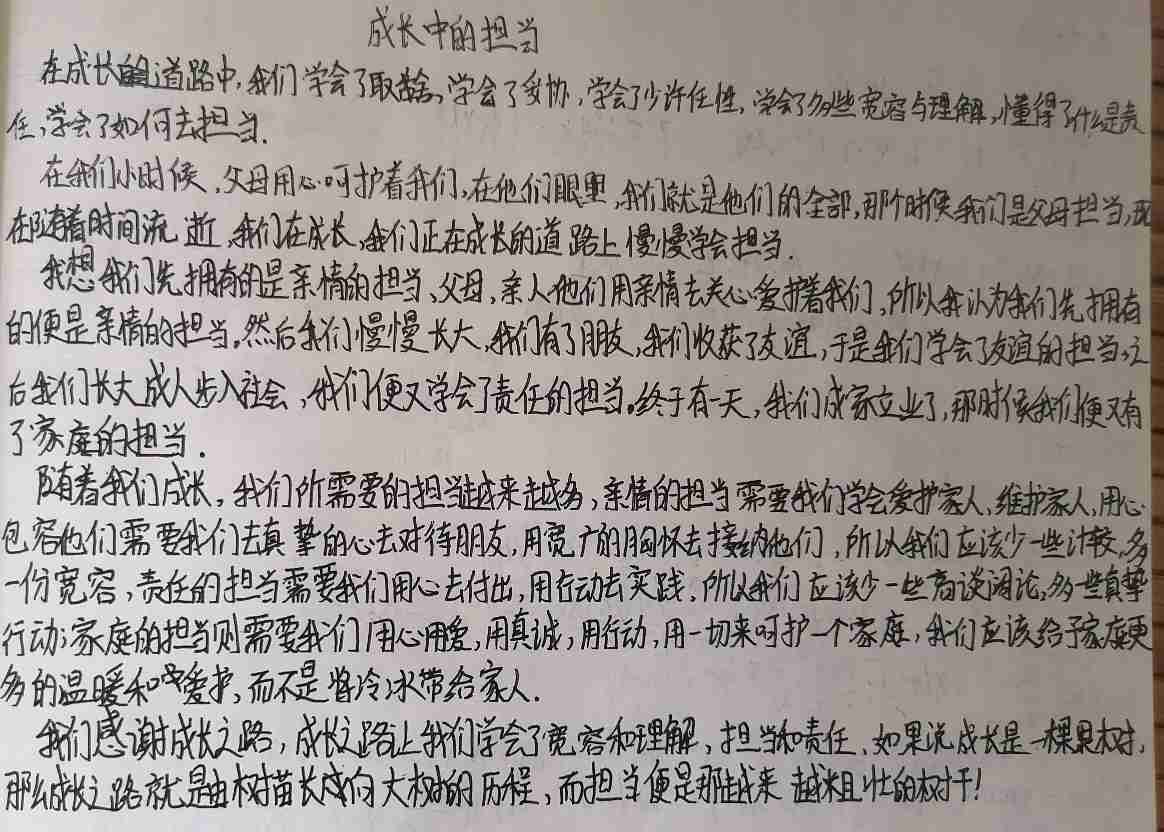 成长中的担当
在成长的道路中,我们学会了取舍,学会了妥协,学会了少许任性,学会了多些宽容与理解,懂得了什么是责
任,学会了如何去担当.
在我们小时候,父母用心呵护着我们,在他们眼里,我们就是他们的全部,那个时候我们是父母担当,现
在随着时间流逝,我们在成长,我们正在成长的道路上慢慢学会担当.
我想我们先拥有的是亲情的担当、父母、亲人他们用亲情去关心爱护着我们,所以我认为我们先拥有
的便是亲情的担当。然后我们慢慢长大,我们有了朋友,我们收获了友谊,于是我们学会了友谊的担当,之
后我们长大成人步入社会,我们便又学会了责任的担当。终于有一天,我们成家立业了,那时候我们便又有
了家庭的担当.
随着我们成长,我们所需要的担当越来越多,亲情的担当需要我们学会爱护家人,维护家人,用心
包容他们需要我们去真挚的心去对待朋友,用宽广的胸怀去接纳他们,所以我们应该少一些计较,多
一份宽容,责任的担当需要我们用心去付出,用行动去实践,所以我们应该少一些高谈阔论,多一些真挚
行动;家庭的担当则需要我们用心用爱,用真诚,用行动,用一切来呵护一个家庭,我们应该给予家庭更
多的温暖和爱护,而不是将冷冰带给家人.
我们感谢成长之路,成长之路让我们学会了宽容和理解、担当和责任,如果说成长是一棵果树,
那么成长之路就是由树苗长成向大树的历程,而担当便是那越来越粗壮的树干!